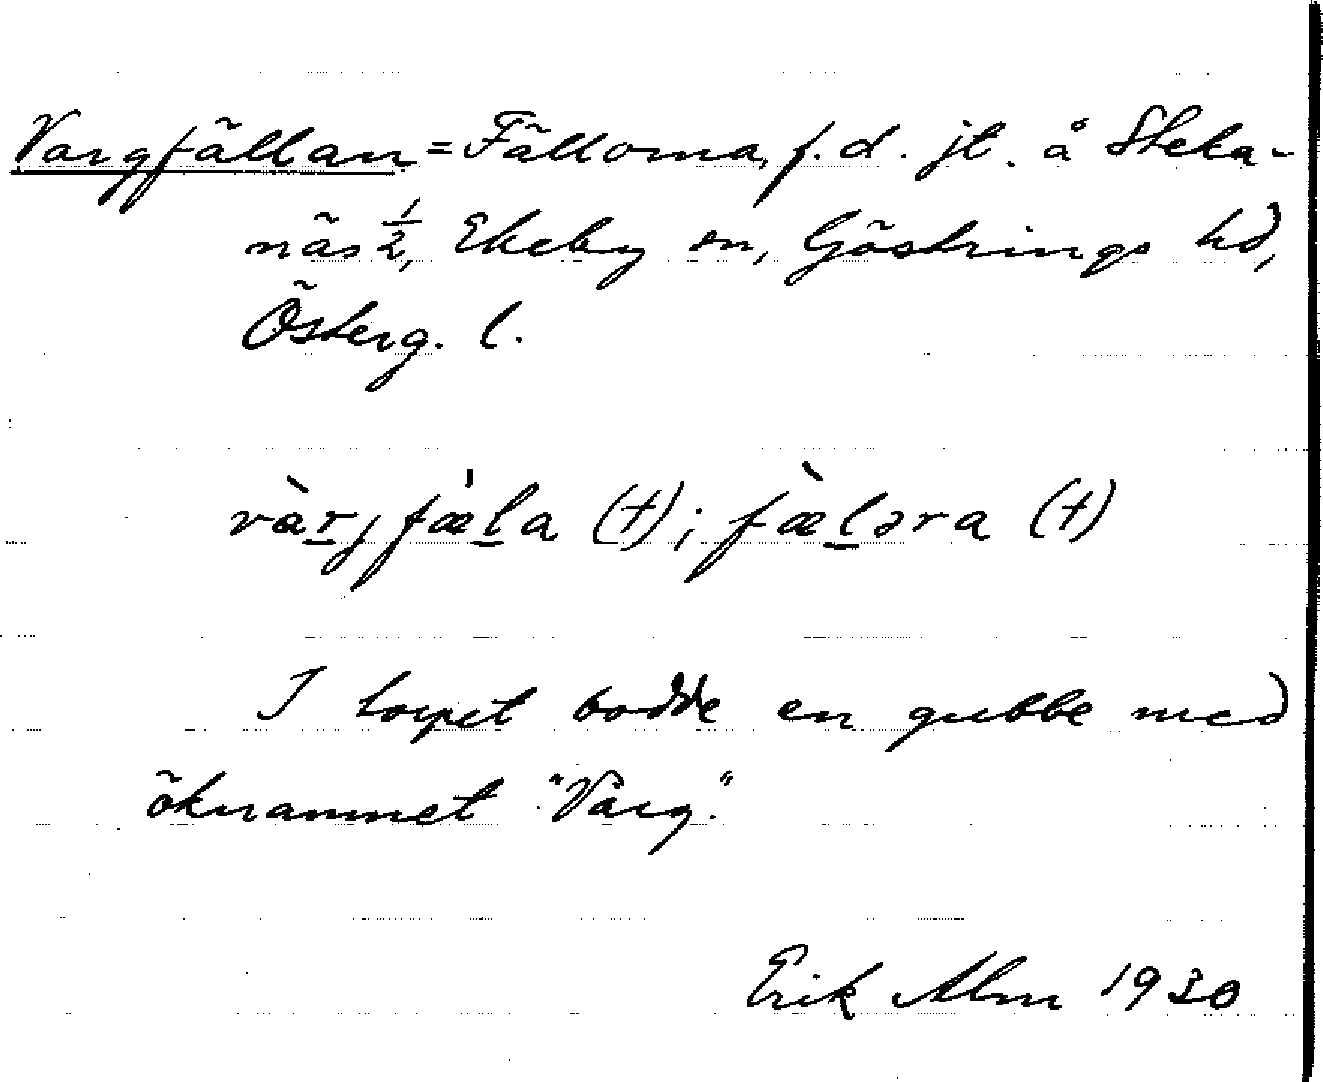 Vargfällan = Fällorna, f.d. jt. å Steka-
näs 1/2, Ekeby sn, Göstrings hd,
Österg. l.
vàrjfæ̀la (†); fæ̀ləra (†)
I torpet bodde en gubbe med
öknamnet "Varg".
Erik Alm 1930